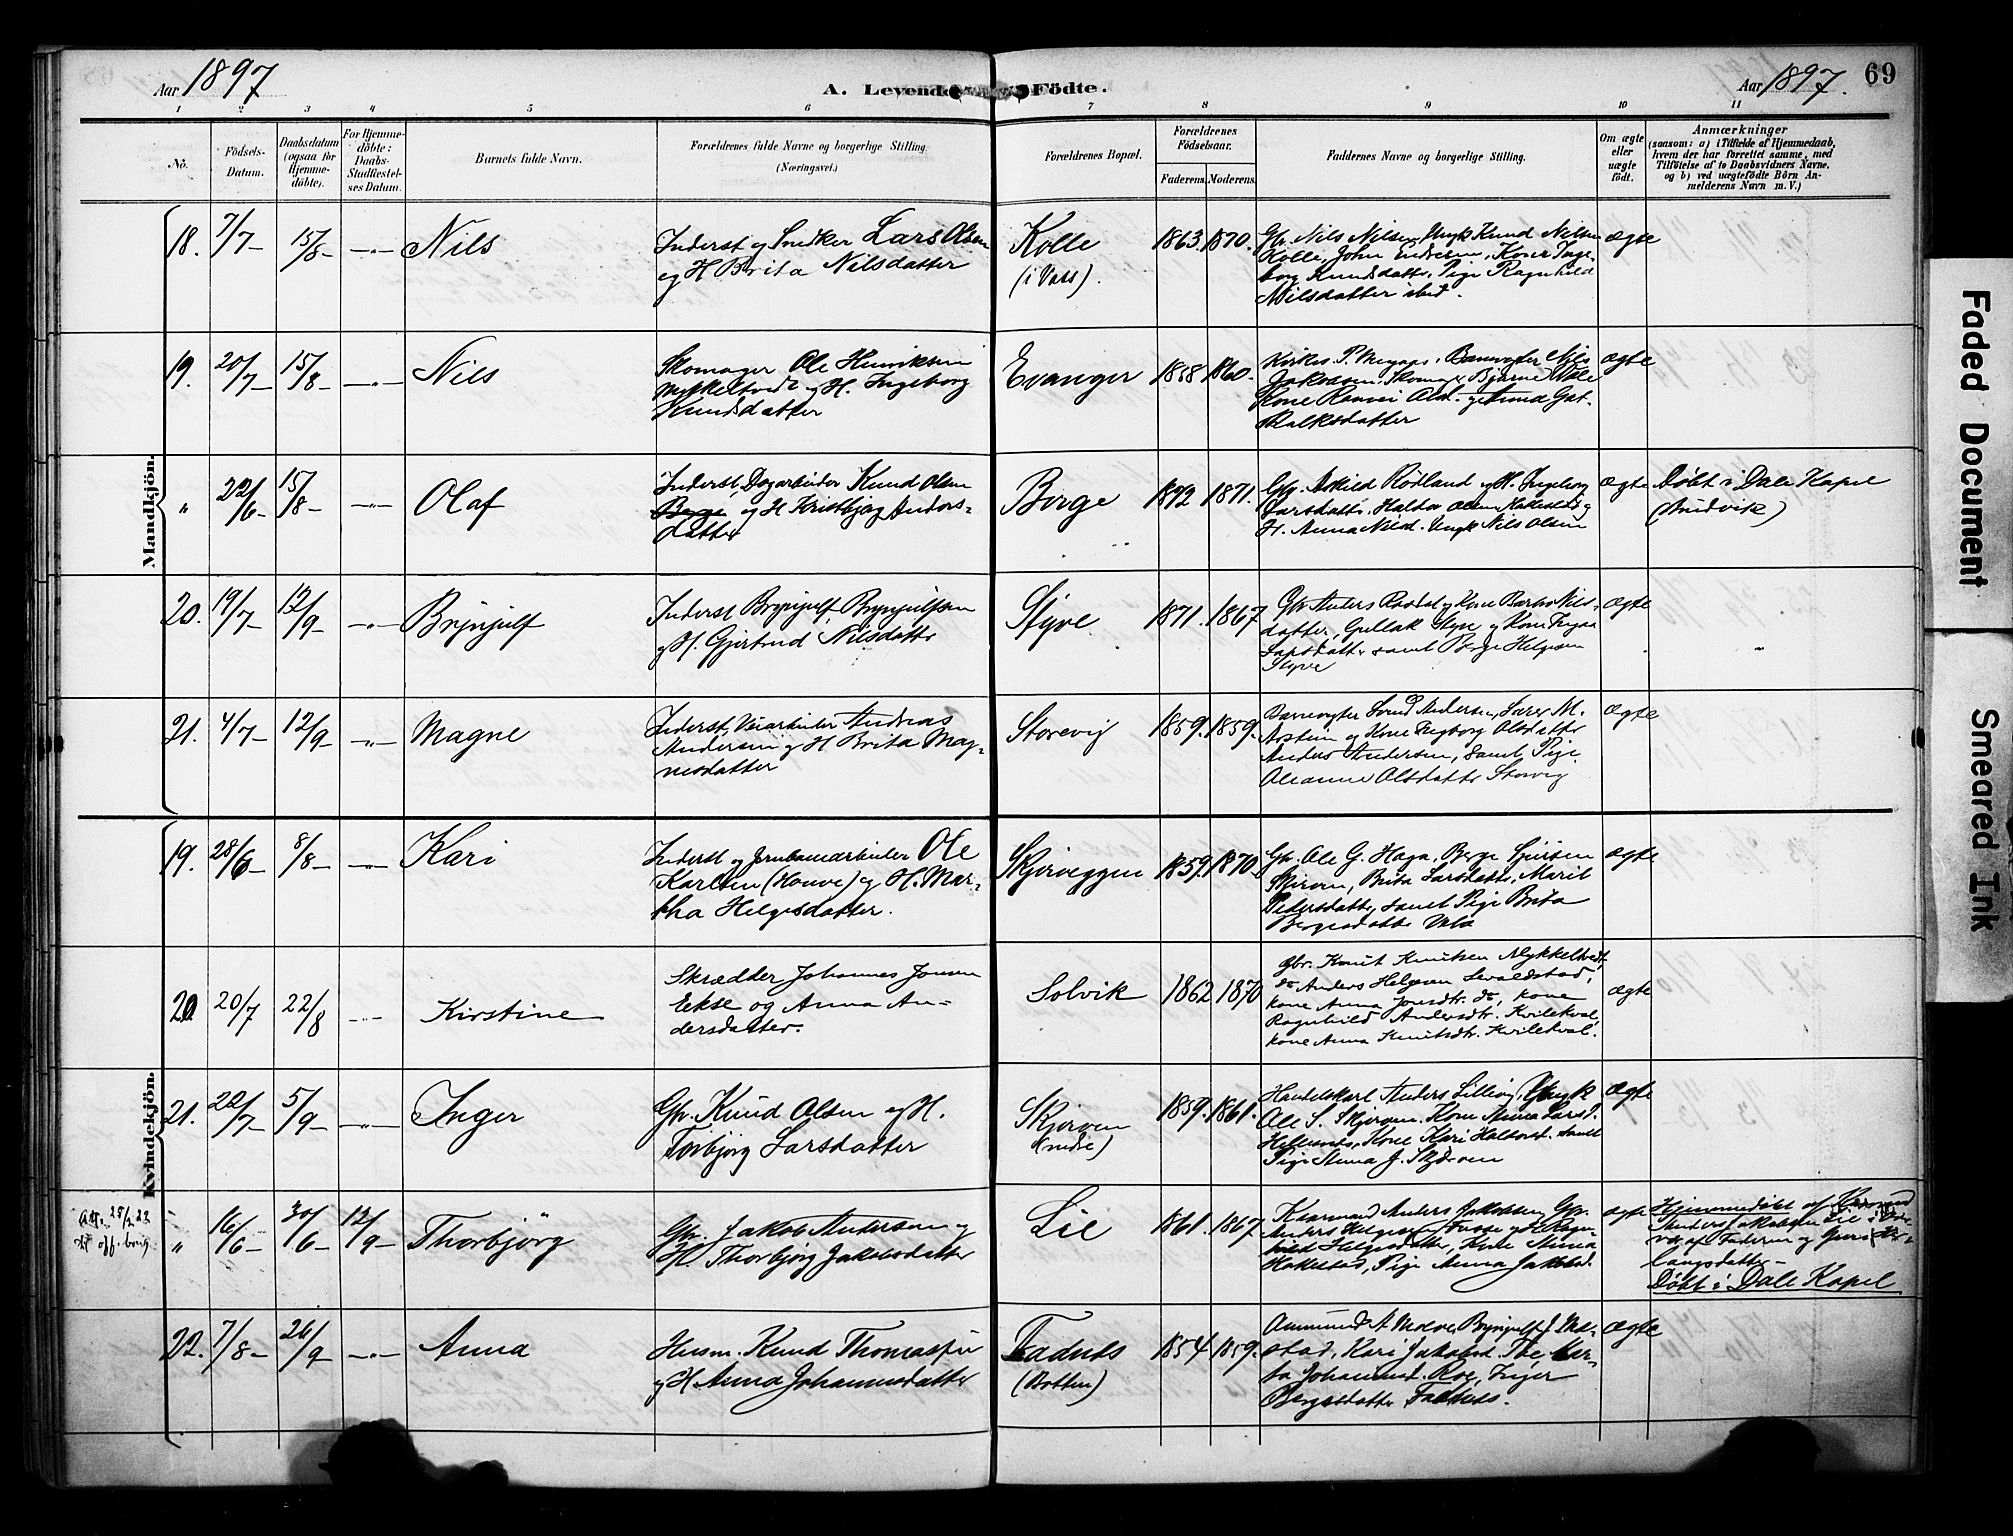 Aar 1897
A. Levende Födte.
Aar 1897.
69
1 2 3 4 5 6 7 8 9 10 11
No.
Födsels-
Datum.
Daabsdatum
(ogsaa for
Hjemme-
döbte).
For Hjemme-
döbte:
Daabs-
Stadfæstel-
ses Datum.
Barnets fulde Navn.
Forældrenes fulde Navne og borgerlige Stilling.
(Næringsvei.)
Forældrenes Bopæl.
Forældrenes
Födselsaar.
Faderens.
Moderens.
Faddernes Navne og borgerlige Stilling.
Om ægte
eller
uægte
födt.
Anmærkninger
(saasom: a) i Tilfælde af Hjemmedaab,
hvem der har forrettet samme, med
Tilföielse af to Daabsvidners Navne,
og b) ved uægtefödte Börn An-
melderens Navn m. V.)
Mandkjön.
18. 7/7 15/8 Nils
Inderst og Snedker Lars Olsen
og H Brita Nilsdatter
Kolle
(i Voss).
1863. 1870.
Gbr. Nils Nilsen, Ungk Knud Nilsen
Kolle, John Endresen, Kone Inge-
borg Knudsdatter, Pige Ragnhild
Nilsdatter ibid.
ægte
19. 20/7 15/8 Nils
Skomager Ole Henriksen
Mykkeltvedt og H. Ingeborg
Knudsdatter
Evanger
1858 1860.
Banevogter Nils
Jakobsen, Skomager
Kone
datter
ægte
" 22/6 15/8 Olaf
Inderst, Dagarbeider Knud Olsen
Berge og H Kristbjørg Anders-
datter
Berge
1872 1871.
Gbr. Askild Rødland og H. Ingeborg
Larsdatter, Haldor Olsen
H. Anna Ungk Nils Olsen
ægte
Døbt i Dale Kapel
20. 19/7 12/9 Brynjulf
Inderst Brynjulf Brynjulfsen
og H. Gjertrud Nilsdatter
Styve
1871. 1867
Gbr Anders og Kone Barbro Nils-
datter, Gullak Styve og Kone
Larsdatter samt Berge Helgesen
Styve
ægte
21. 4/7 12/9 Magne
Inderst, Veiarbeider Andreas
Andersen og H Brita Mag-
nesdatter
Storevig
1859. 1859.
Banevogter Andersen, Lærer M.
og Kone Ingeborg Olsdatter
Anders Andersen, samt Pige
Oleanne Olsdatter Storevig
ægte
Kvindekjön.
19. 28/6 8/8 Kari
Inderst og Jernbanearbeider Ole
Karlsen (Horve) og H. Mar-
tha Helgesdatter.
Skjerveggen
1859. 1870.
Gbr. Ole G. Haga, Berge Sjursen
Skjerven, Brita Larsdatter, Marit
Pedersdatter, samt Pige Brita
Bergesdatter
ægte
20 20/7 22/8 Kirstine
Skrædder Johannes Jonsen
Ekse og Anna An-
dersdatter.
Solvik
1862 1870
Gbr. Knut Knutsen Mykkeltvedt,
do Anders Helgesen
kone Anna Jonsdtr. do, kone
Ragnhild Andersdtr. Kvilekval,
kone Anna Knutsdtr. Kvilekval.
ægte
21. 22/7 5/9 Inger
Gbr. Knud Olsen og H.
Torbjørg Larsdatter
Skjerven
(nedre)
1859. 1861.
Handelskarl Anders Lillevig, Ungk
Ole S. Skjerven, Kone Anna Larsd.
Hellesnes, Kone Kari Haldorsd. samt
Pige Anna J. Skjerven
ægte
" 16/6 30/6 12/9 Thorbjörg
Gbr. Jakob Andersen og
H Thorbjørg Jakobsdatter
Lie
1861. 1867
Kaarmand Anders Jakobsen, Gbr.
Anders Helgesen Fosse og H Ragn-
hild Helgesdatter, Kone Anna
Pige Anna Jakobsd.
ægte
Hjemmedöbt af Kaarmand
Anders Jakobsen Lie i Over-
vær af Faderen og
langsdatter
Döbt i Dale Kapel
22. 7/8 26/9 Anna
Husm. Knud Thomassen
og H Anna Johannesdatter
Fadnes
(Botten)
1854 1859.
Brynjulf J.
Kari Jakobsd.
Johannesd. Roe, Inger
Bergesdatter Fadnes.
ægte
Faded Document
Smeared Ink